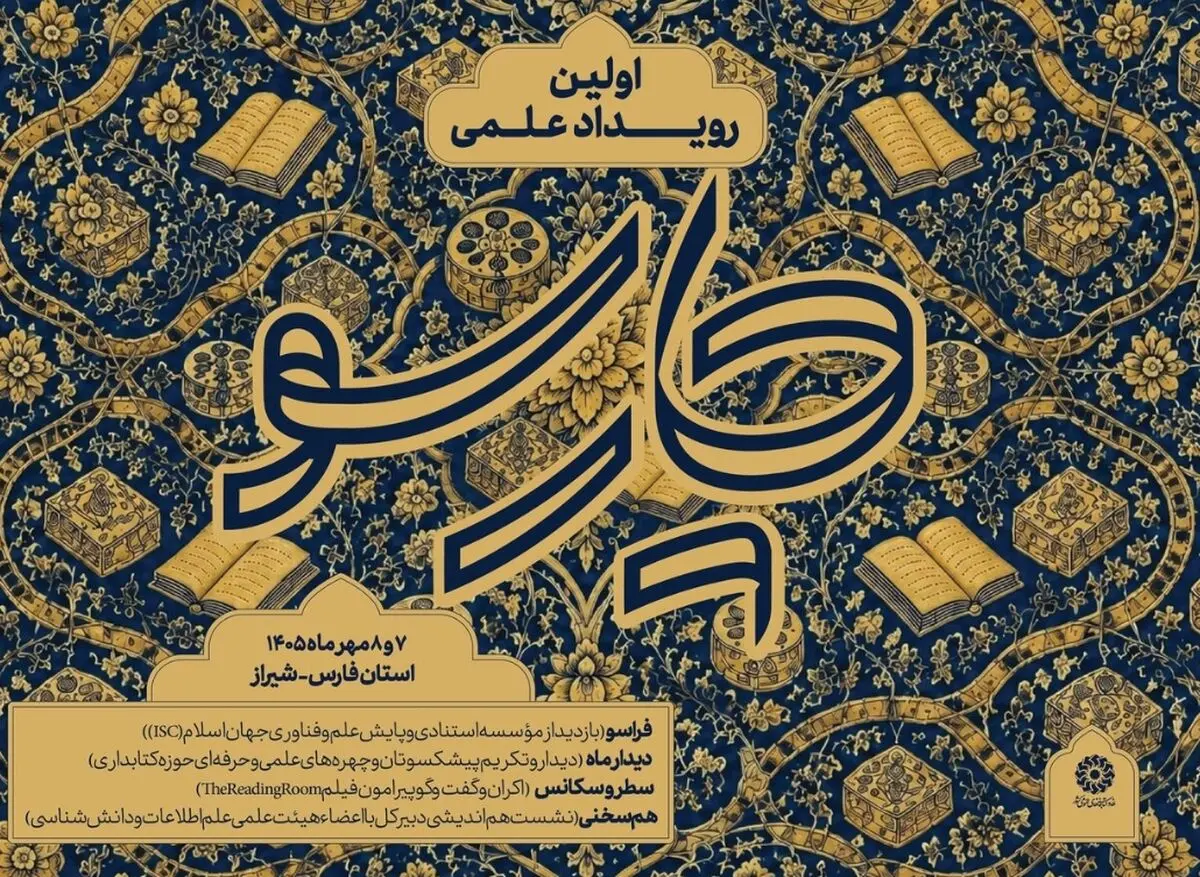 اولین
رویـــداد علـمی
چارسو
۷ و ۸ مهر ماه ۱۴۰۵
استان فارس - شیراز
فراسو (بازدید از مؤسسه استنادی و پایش علم و فناوری جهان اسلام (ISC))
دیدار ماه (دیدار و تکریم پیشکسوتان و چهره‌های علمی و حرفه‌ای حوزه کتابداری)
سطر و سکانس (اکران و گفت و گو پیرامون فیلم The Reading Room)
هم‌سخنی (نشست هم‌اندیشی دبیرکل با اعضاء هیئت علمی علم اطلاعات و دانش‌شناسی)